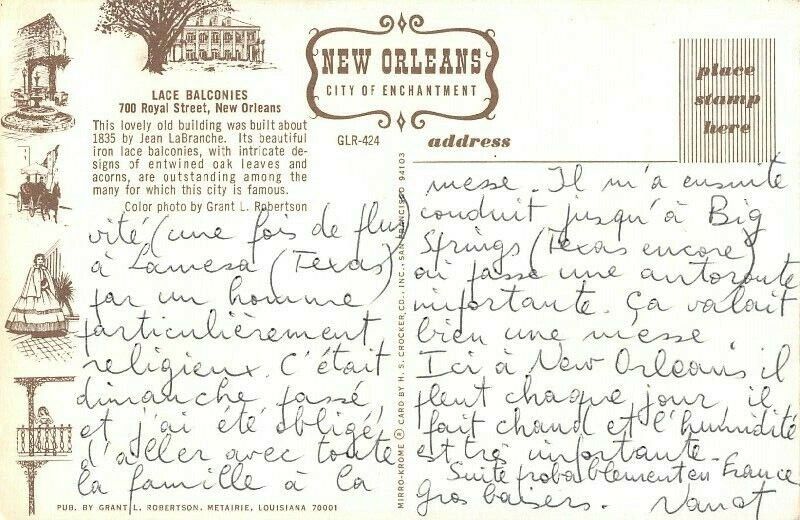 LACE BALCONIES
700 Royal Street, New Orleans
This lovely old building was built about
1835 by Jean LaBranche. Its beautiful
iron lace balconies, with intricate de-
signs of entwined oak leaves and
acorns, are outstanding among the
many for which this city is famous.
Color photo by Grant L. Robertson
NEW ORLEANS
CITY OF ENCHANTMENT
GLR-424
address
place
stamp
here
vité (une fois de plus)
à Lamesa (Texas)
par un homme
particulièrement
religieux. C'était
dimanche passé
et j'ai été obligé
d'aller avec toute
la famille à la
messe. Il m'a ensuite
conduit jusqu'à Big
Springs (Texas encore)
où passe une autoroute
importante. Ça valait
bien une messe.
Ici à New Orleans il
pleut chaque jour il
fait chaud et l'humidité
est très importante.
Suite probablement en France
Gros baisers.
MIRRO-KROME ® CARD BY H. S. CROCKER CO., INC., SAN FRANCISCO 94103
PUB. BY GRANT L. ROBERTSON, METAIRIE, LOUISIANA 70001